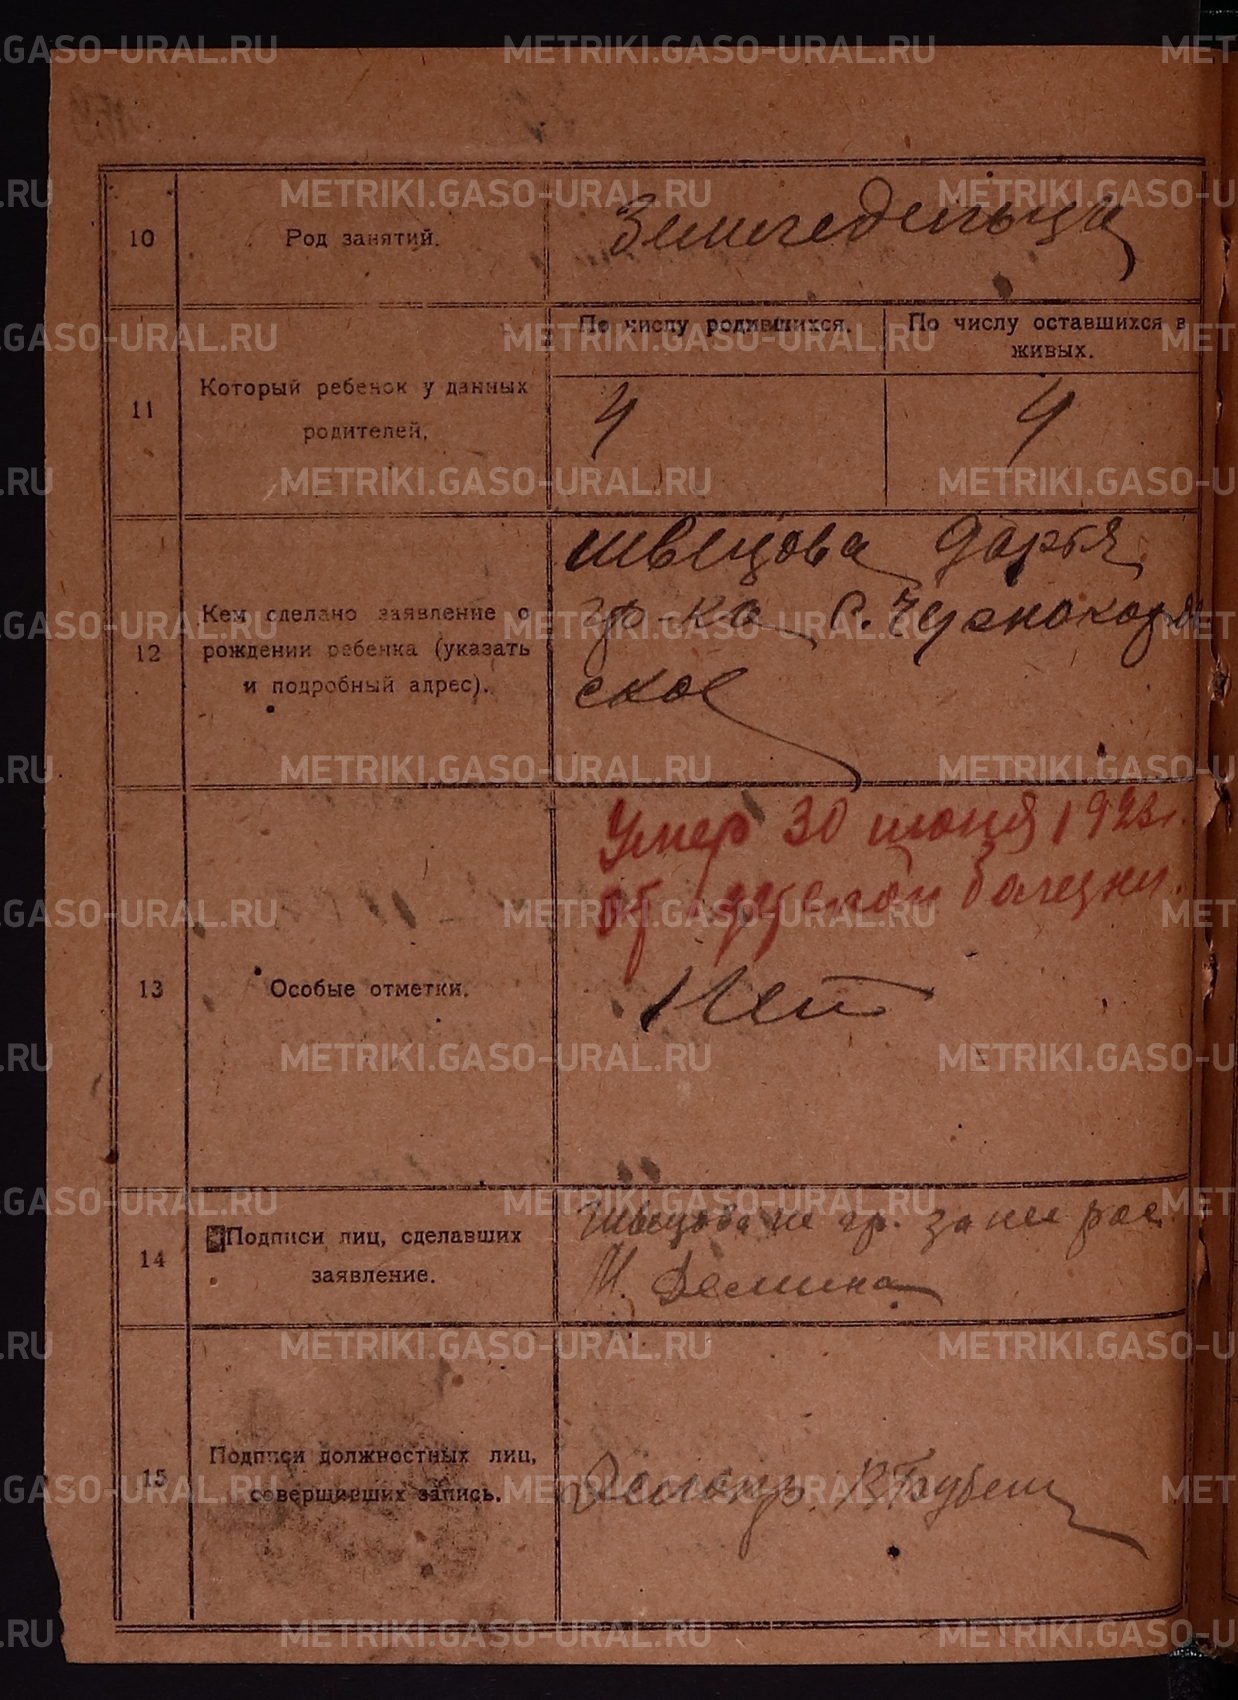 10
Род занятий.
Земледельца
11
Который ребенок у данных
родителей.
По числу родившихся.
4
По числу оставшихся в
живых.
4
12
Кем сделано заявление о
рождении ребенка (указать
и подробный адрес).
Швецова Дарья
гр-ка с. Чернокоров
ское
13
Особые отметки.
Умер 30 июня 1923 г.
от грудной болезни.
Нет
14
Подписи лиц, сделавших
заявление.
Швецова не гр. за нее рас.
Демина
15
Подписи должностных лиц,
совершивших запись.
METRIKI.GASO-URAL.RU